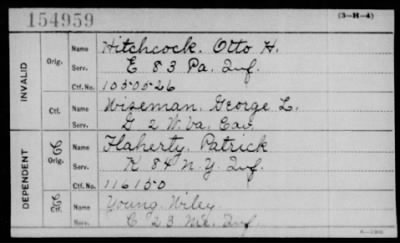 154959
(3-H-4)
INVALID
Orig.
Name Hitchcock, Otto H.
Serv. E 83 Pa. Inf.
Ctf. No. 1050526
Ctf.
Name Wiseman, George L.
Serv. G 2 W. Va. Cav.
DEPENDENT
Orig.
Name Flaherty, Patrick
Serv. K 84 N.Y. Inf.
Ctf. No. 116150
Name Young, Wiley
Serv. C 23 Inf.